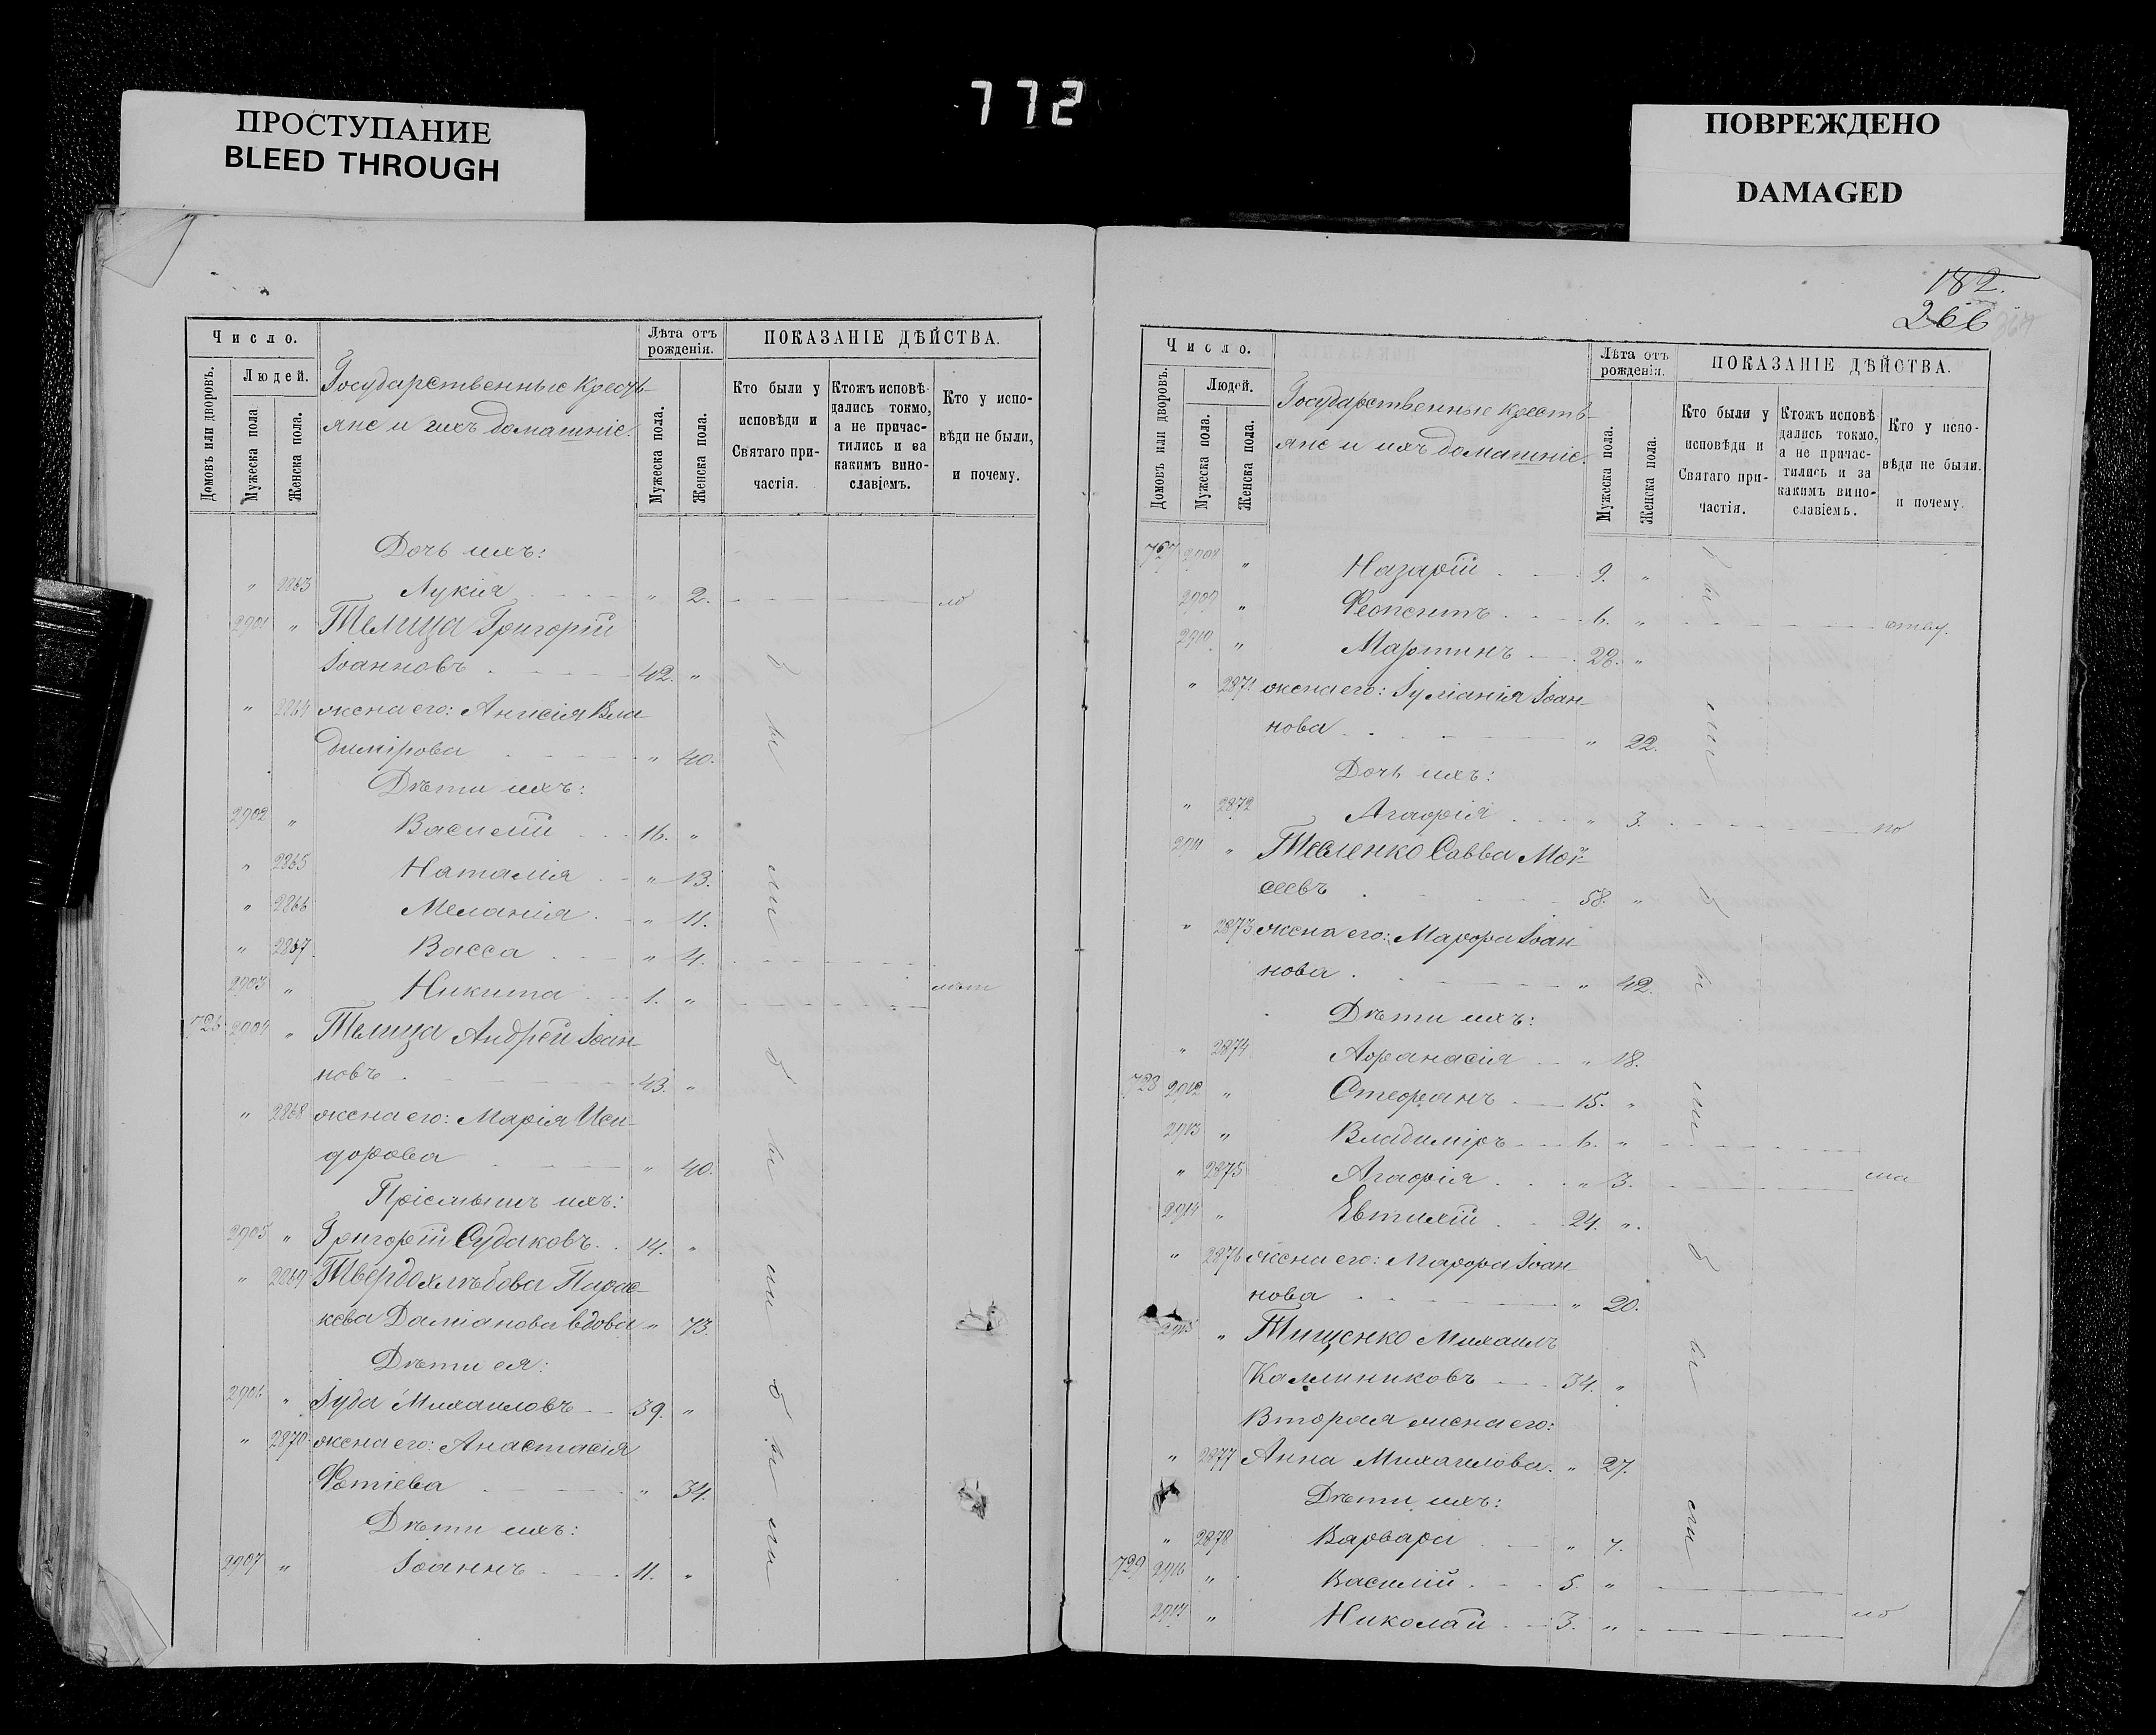 772
ПРОСТУПАНИЕ
BLEED THROUGH
ПОВРЕЖДЕНО
DAMAGED
Число.
Домовъ или дворовъ.
Людей.
Мужеска пола
Женска пола.
Государственные крестъ-
яне и ихъ домашніе.
Лѣта отъ рожденія.
Мужеска пола.
Женска пола.
ПОКАЗАНІЕ ДѢЙСТВА.
Кто были у исповѣди и Святаго при-частія.
Ктожъ исповѣ-дались токмо, а не причас-тились и за какимъ вино-славіемъ.
Кто у испо-вѣди не были, и почему.
Дочь ихъ:
" 2863 Лукія " 2.
2901 " Телица Григорій
Іоанновъ 42. "
" 2864 жена его: Анисія Вла-
димірова " 40.
Дѣти ихъ:
2902 " Василій 16. "
" 2865 Наталія " 13.
" 2866 Меланія " 11.
" 2867 Васса " 4.
2903 " Никита 1. "
726 2904 " Телица Андрей Іоан-
новъ 43. "
" 2868 жена его: Марія Иси-
дорова " 40.
Пріемышъ ихъ:
2905 " Григорій Судаковъ. 14. "
" 2869 Твердохлѣбова Парас-
кева Даміанова вдова " 73.
Дѣти ея:
2906 " Іуда Михаиловъ 39. "
" 2870 жена его: Анастасія
Фотіева " 34.
Дѣти ихъ:
2907 " Іоаннъ 11. "
были
были
были
182.
266
Число.
Домовъ или дворовъ.
Людей.
Мужеска пола.
Женска пола.
Государственные крестъ-
яне и ихъ домашніе.
Лѣта отъ рожденія.
Мужеска пола.
Женска пола.
ПОКАЗАНІЕ ДѢЙСТВА.
Кто были у исповѣди и Святаго при-частія.
Ктожъ исповѣ-дались токмо, а не причас-тились и за какимъ вино-славіемъ.
Кто у испо-вѣди не были. и почему.
727 2908 " Назарій 9. "
2909 " Феопентъ 6. "
2910 " Мартинъ 28. "
" 2871 жена его: Іуліанія Іоан-
нова " 22.
Дочь ихъ:
" 2872 Агафія " 3.
2911 " Тесленко Савва Мой-
сеевъ 58. "
" 2873 жена его: Марфа Іоан-
нова " 42.
Дѣти ихъ:
" 2874 Афанасія " 18.
728 2912 " Стефанъ 15. "
2913 " Владиміръ 6. "
" 2875 Агафія " 3.
2914 " Евтихій 24. "
" 2876 жена его: Марфа Іоан-
нова " 20.
2915 " Тищенко Михаилъ
Каллиниковъ 34. "
Вторая жена его:
" 2877 Анна Михаилова. " 27.
Дѣти ихъ:
" 2878 Варвара " 7.
729 2916 " Василій 5. "
2917 " Николай 3. "
были
были
были